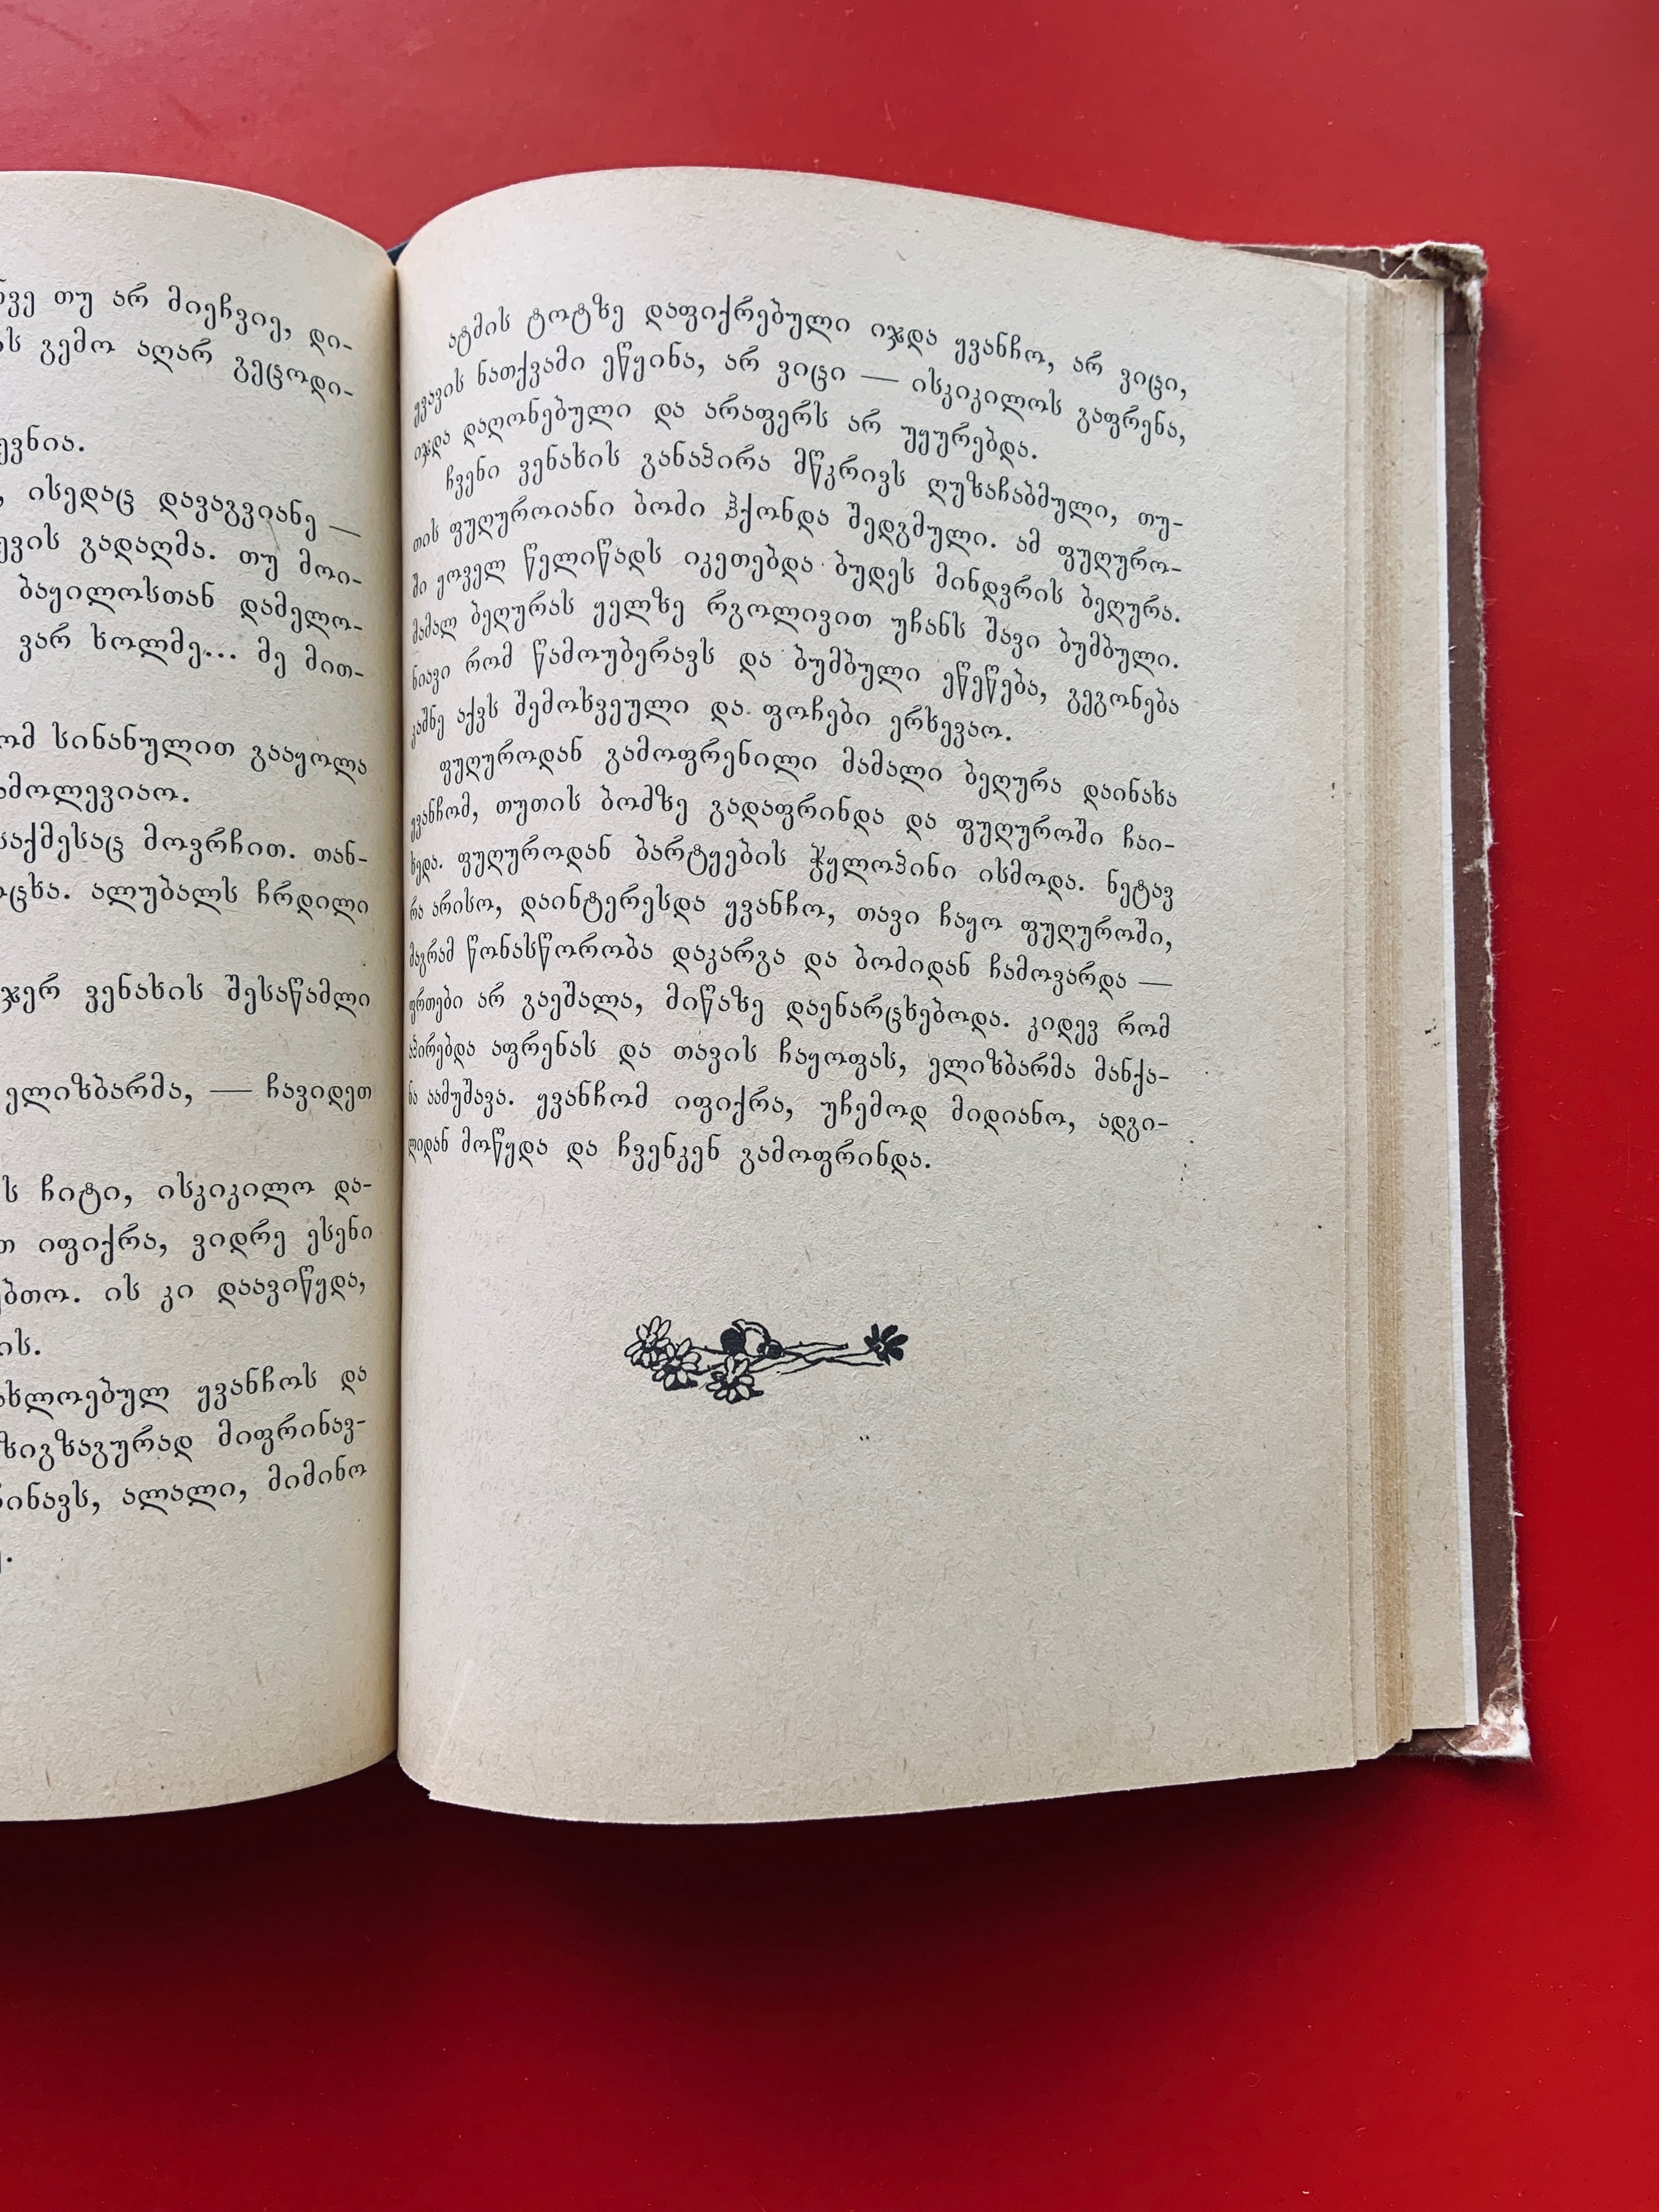 თუ არ მიეჩვიე, დი-
გემო აღარ გეცოდი-
ისედაც დავაგვიანე —
გადაღმა. თუ მოი-
ბაყილოსთან დამელო-
ვარ ხოლმე... მე მით-
სინანულით გააყოლა
მოვრჩით. თან-
ალუბალს ჩრდილი
ვენახის შესაწამლი
ელიზბარმა, — ჩავიდეთ
ჩიტი, ისკიკილო და-
იფიქრა, ვიდრე ესენი
ის კი დაავიწყდა,
ყვანჩოს და
მიფრინავ-
ალალი, მიმინო
ატმის ტოტზე დაფიქრებული იჯდა ყვანჩო, არ ვიცი,
ყვავის ნათქვამი ეწყინა, არ ვიცი — ისკიკილოს გაფრენა,
იჯდა დაღონებული და არაფერს არ უყურებდა.
ჩვენი ვენახის განაპირა მწკრივს ღუზაჩაბმული, თუ-
თის ფუღუროიანი ბოძი ჰქონდა შედგმული. ამ ფუღურო-
ში ყოველ წელიწადს იკეთებდა ბუდეს მინდვრის ბეღურა.
მამალ ბეღურას ყელზე რგოლივით უჩანს შავი ბუმბული.
ნიავი რომ წამოუბერავს და ბუმბული ეწეწება, გეგონება
კაშნე აქვს შემოხვეული და ფოჩები ერხევაო.
ფუღუროდან გამოფრენილი მამალი ბეღურა დაინახა
ყვანჩომ, თუთის ბოძზე გადაფრინდა და ფუღუროში ჩაი-
ხედა. ფუღუროდან ბარტყების ჭყლოპინი ისმოდა. ნეტავ
რა არისო, დაინტერესდა ყვანჩო, თავი ჩაყო ფუღუროში,
მაგრამ წონასწორობა დაკარგა და ბოძიდან ჩამოვარდა —
ფრთები არ გაეშალა, მიწაზე დაენარცხებოდა. კიდევ რომ
აპირებდა აფრენას და თავის ჩაყოფას, ელიზბარმა მანქა-
ნა აამუშავა. ყვანჩომ იფიქრა, უჩემოდ მიდიანო, ადგი-
ლიდან მოწყდა და ჩვენკენ გამოფრინდა.